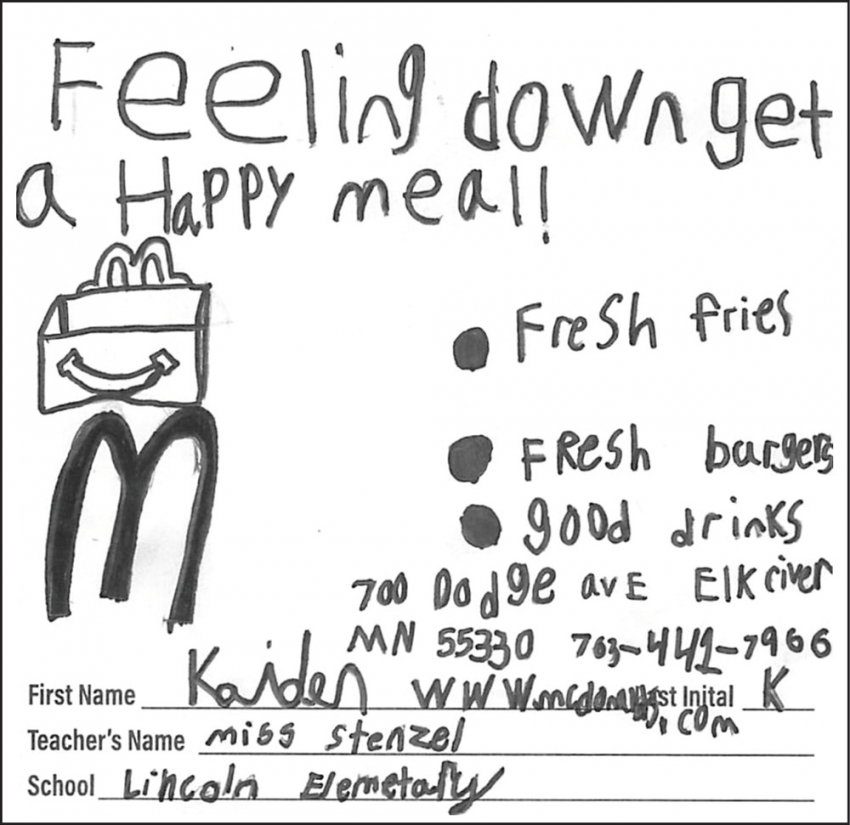 Feeling down get
a Happy meal!
Fresh fries
Fresh burgers
good drinks
700 Dodge avE Elk river
MN 55330 763-441-7966
First Name Kaiden www.mcdonalds.com st Inital K
Teacher's Name miss stenzel
School Lincoln Elemetary